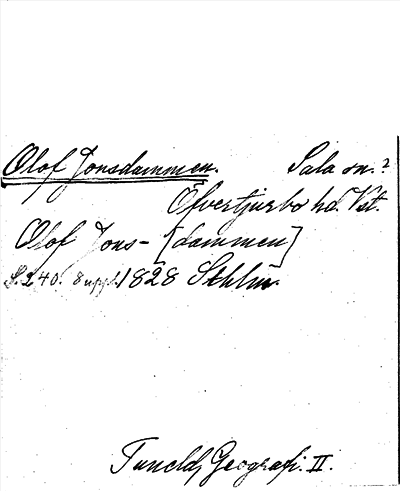 Olof Jonsdammen. Sala sn.?
Öfvertjurbo hd. Vst.
Olof Jons- [dammen]
S. 240. 8 uppl. 1828 Sthlm.
Tunelds Geografi. II.